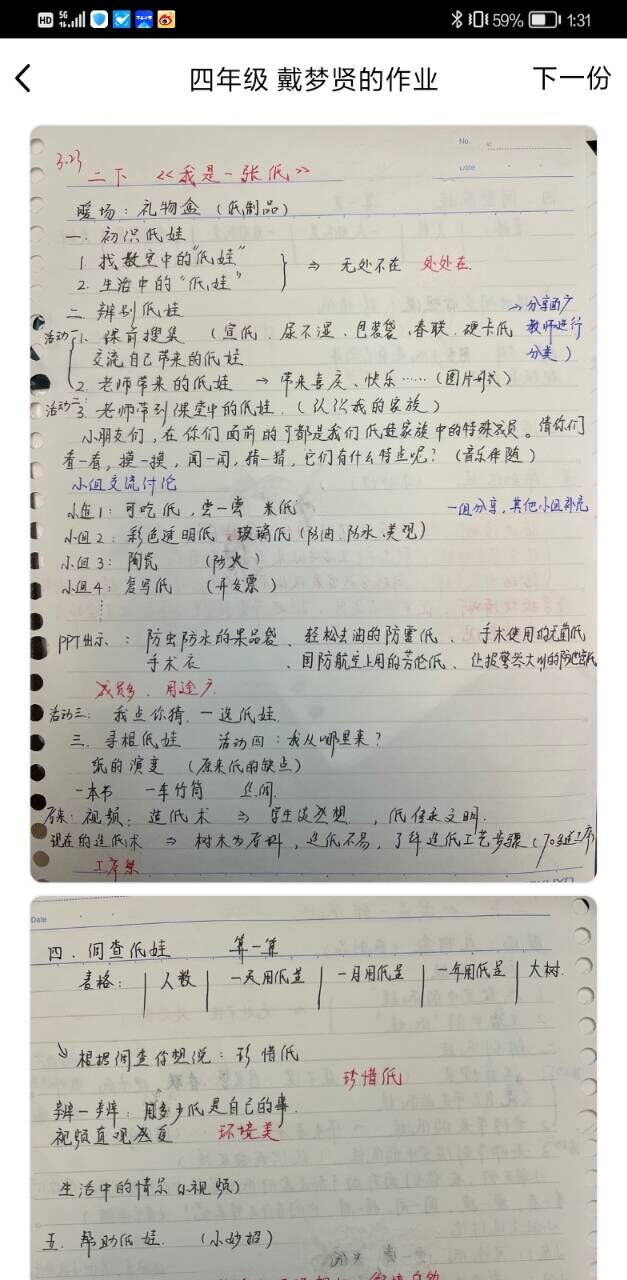 HD 5G 59% 1:31
四年级 戴梦贤的作业
下一份
No.
Date
3.23
二下 《我是一张纸》
暖场：礼物盒（纸制品）
一. 初识纸娃
1. 找教室中的“纸娃”
2. 生活中的“纸娃”
} ⇒ 无处不在 处处在.
二. 辨别纸娃
活动一: 1. 课前搜集（宣纸、尿不湿、包装袋、春联、硬卡纸
→ 分享面广
教师进行
分类）
交流自己带来的纸娃
2. 老师带来的纸娃 → 带来喜庆、快乐……（图片形式）
活动二: 3. 老师带到课堂中的纸娃.（认识我的家族）
小朋友们，在你们面前的可都是我们纸娃家族中的特殊成员。请你们
看一看，摸一摸，闻一闻，猜一猜，它们有什么特点呢？（音乐伴随）
小组交流讨论
小组1：可吃纸，尝一尝 米纸
一组分享，其他小组补充
小组2：彩色透明纸、玻璃纸（防油.防水.美观）
小组3：陶瓷 （防火）
小组4：复写纸 （开发票）
PPT出示：防虫防水的果品袋、轻松去油的防雾纸、手术使用的无菌纸
手术衣、国防航空上用的芳纶纸、
成员多、用途广
活动三：我点你猜.一选纸娃.
三. 寻根纸娃 活动四：我从哪里来？
纸的演变（原来纸的缺点）
一本书 一车竹简
视频：造纸术 ⇒ 学生谈感想，纸传承文明.
现在的造纸术 ⇒ 树木为原料，造纸不易，了解造纸工艺步骤（70多道工序
工序繁
Date
四. 调查纸娃 算一算
表格： | 人数 | 一天用纸量 | 一月用纸量 | 一年用纸量 | 大树.
↘ 根据调查你想说：珍惜纸
珍惜纸
辨一辨：用多少纸是自己的事.
视频直观感受 环境美
生活中的情景（小视频）
五. 帮助纸娃.（小妙招）